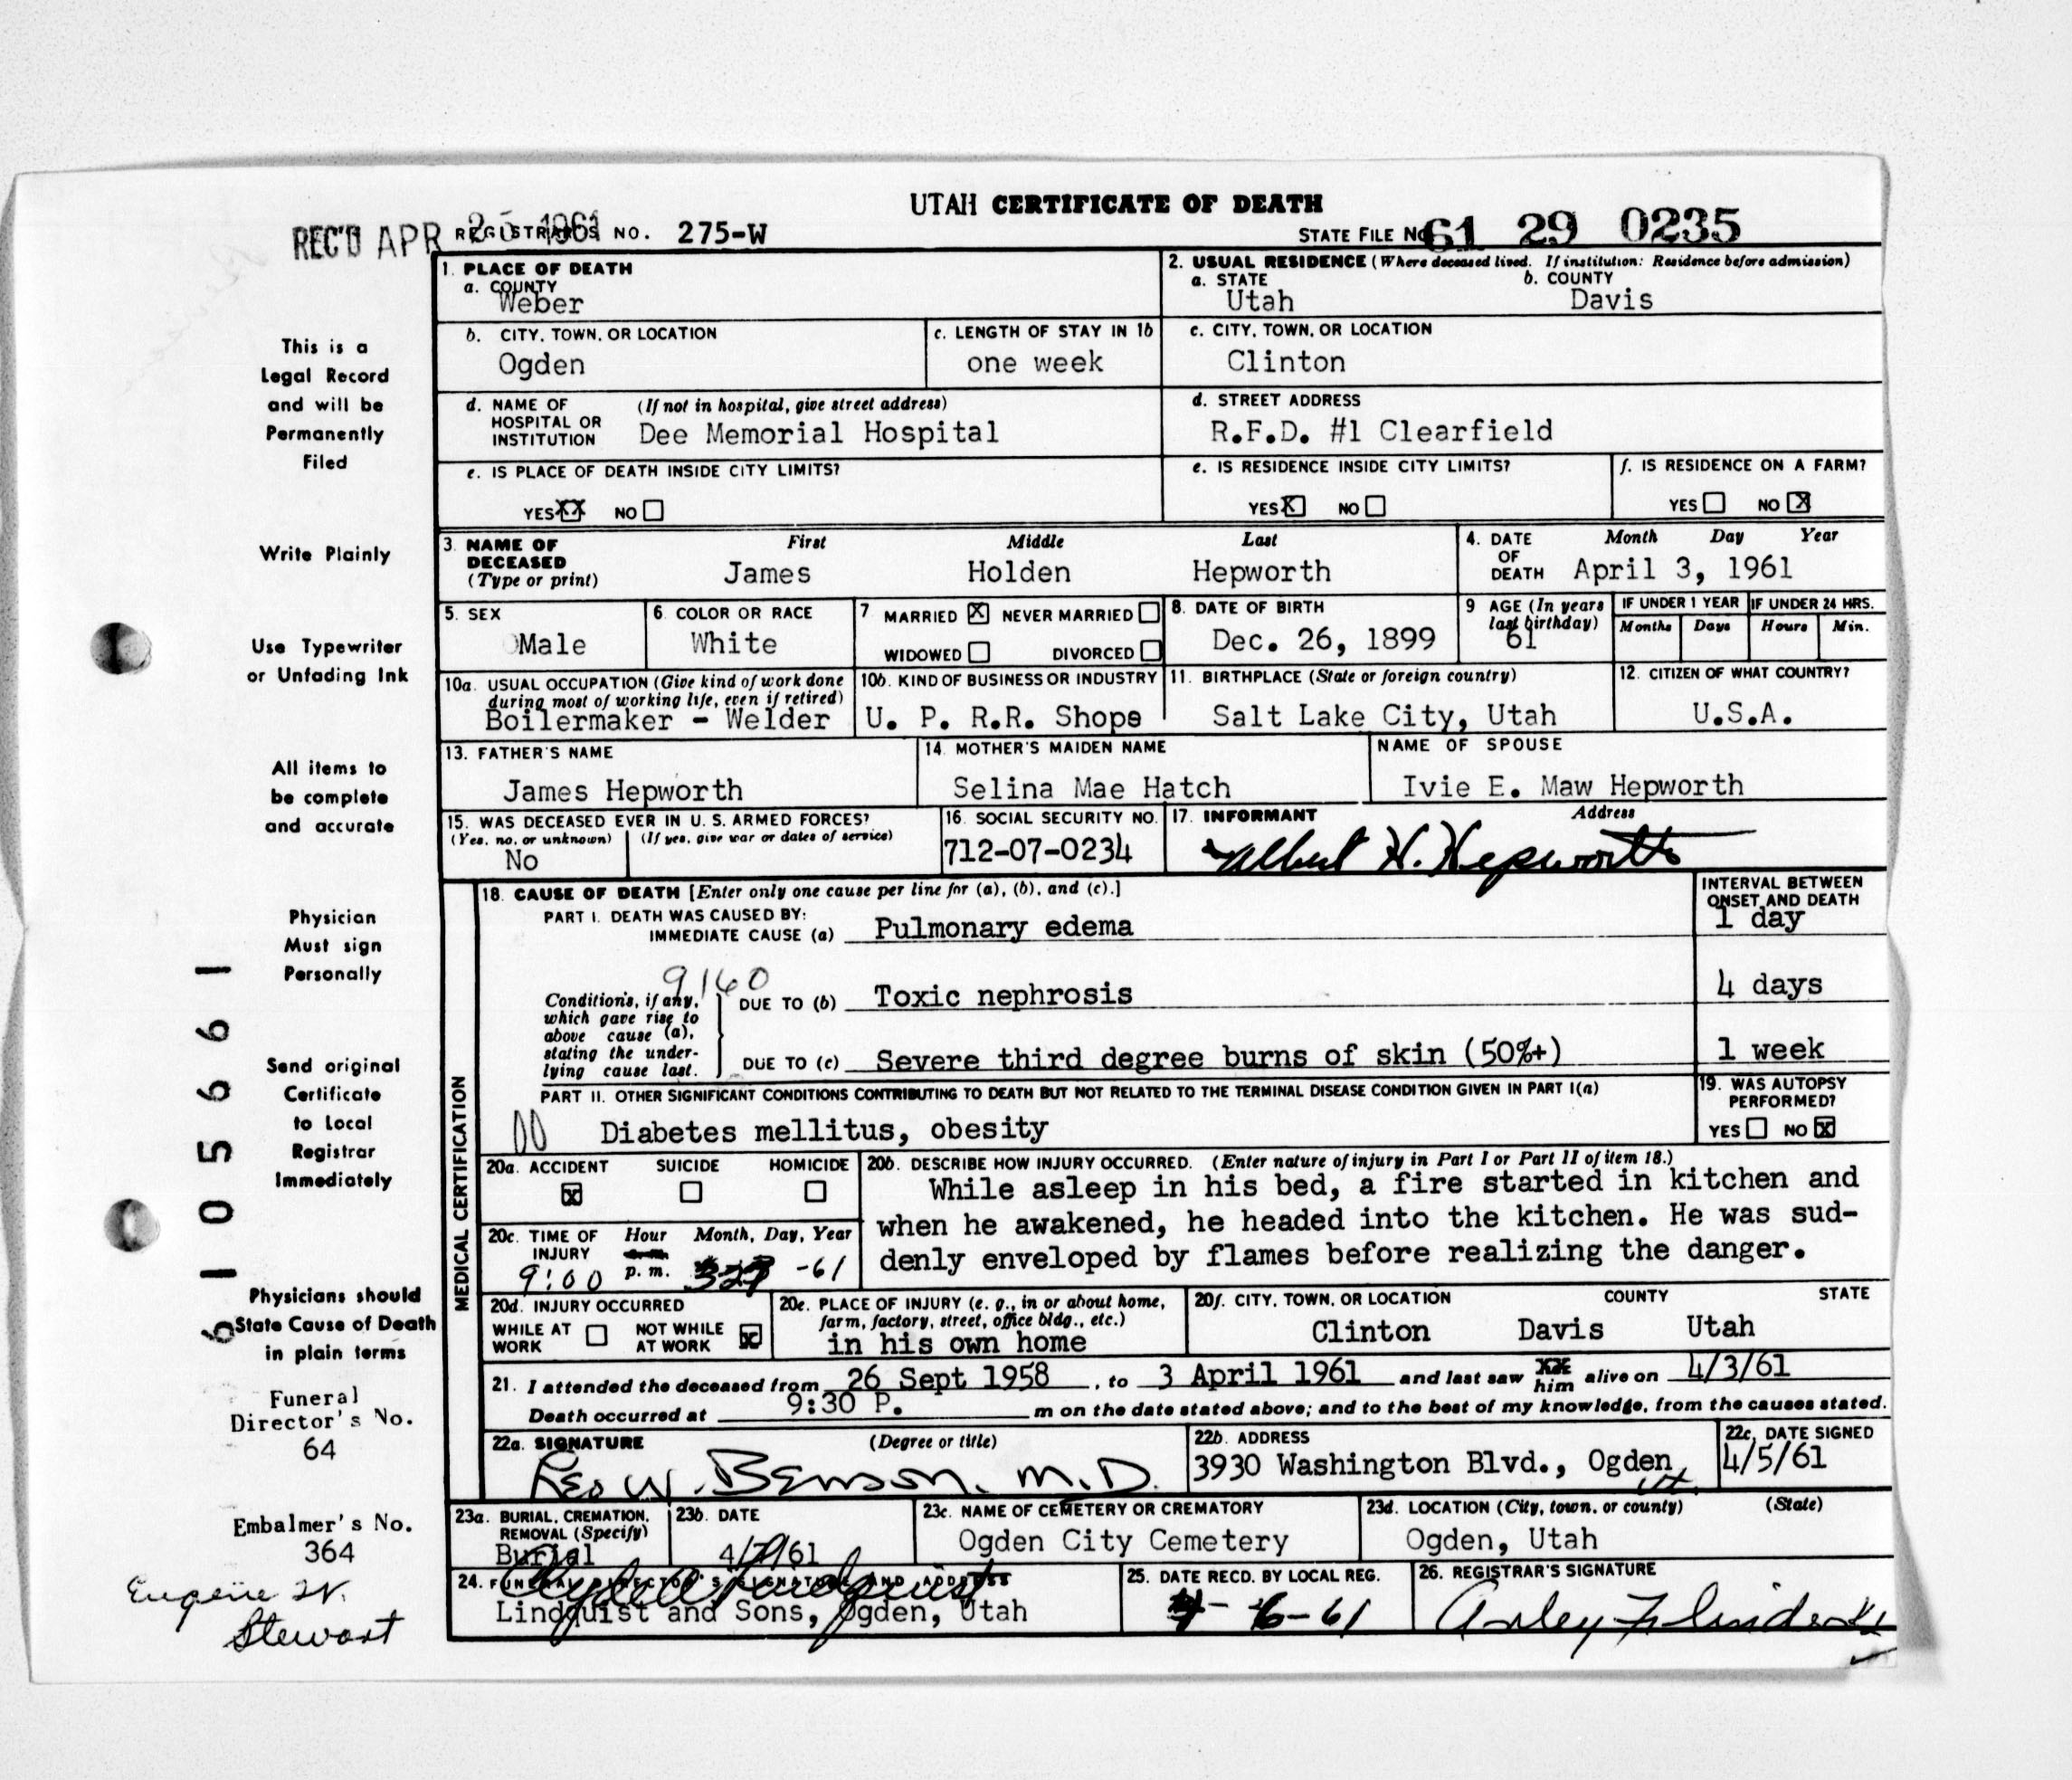 UTAH CERTIFICATE OF DEATH
REC'D APR 25 1961 REGISTRAR'S NO. 275-W
STATE FILE NO. 61 29 0235
1. PLACE OF DEATH
a. COUNTY
Weber
2. USUAL RESIDENCE (Where deceased lived. If institution: Residence before admission)
a. STATE b. COUNTY
Utah Davis
b. CITY, TOWN, OR LOCATION
Ogden
c. LENGTH OF STAY IN 1b
one week
c. CITY, TOWN, OR LOCATION
Clinton
d. NAME OF HOSPITAL OR INSTITUTION (If not in hospital, give street address)
Dee Memorial Hospital
d. STREET ADDRESS
R.F.D. #1 Clearfield
e. IS PLACE OF DEATH INSIDE CITY LIMITS?
YES XX NO
e. IS RESIDENCE INSIDE CITY LIMITS?
YES X NO
f. IS RESIDENCE ON A FARM?
YES NO X
3. NAME OF DECEASED (Type or print)
First Middle Last
James Holden Hepworth
4. DATE OF DEATH Month Day Year
April 3, 1961
5. SEX
Male
6. COLOR OR RACE
White
7 MARRIED X NEVER MARRIED
WIDOWED DIVORCED
8. DATE OF BIRTH
Dec. 26, 1899
9 AGE (In years last birthday)
61
IF UNDER 1 YEAR IF UNDER 24 HRS.
Months Days Hours Min.
10a. USUAL OCCUPATION (Give kind of work done during most of working life, even if retired)
Boilermaker - Welder
10b. KIND OF BUSINESS OR INDUSTRY
U. P. R.R. Shops
11. BIRTHPLACE (State or foreign country)
Salt Lake City, Utah
12. CITIZEN OF WHAT COUNTRY?
U.S.A.
13. FATHER'S NAME
James Hepworth
14. MOTHER'S MAIDEN NAME
Selina Mae Hatch
NAME OF SPOUSE
Ivie E. Maw Hepworth
15. WAS DECEASED EVER IN U. S. ARMED FORCES?
(Yes, no, or unknown) (If yes, give war or dates of service)
No
16. SOCIAL SECURITY NO.
712-07-0234
17. INFORMANT Address
Albert H. Hepworth
MEDICAL CERTIFICATION
18. CAUSE OF DEATH [Enter only one cause per line for (a), (b), and (c).]
INTERVAL BETWEEN ONSET AND DEATH
PART I. DEATH WAS CAUSED BY:
IMMEDIATE CAUSE (a) Pulmonary edema 1 day
9160
Conditions, if any, which gave rise to above cause (a), stating the underlying cause last.
DUE TO (b) Toxic nephrosis 4 days
DUE TO (c) Severe third degree burns of skin (50%+) 1 week
PART II. OTHER SIGNIFICANT CONDITIONS CONTRIBUTING TO DEATH BUT NOT RELATED TO THE TERMINAL DISEASE CONDITION GIVEN IN PART I(a)
Diabetes mellitus, obesity
19. WAS AUTOPSY PERFORMED?
YES NO X
20a. ACCIDENT SUICIDE HOMICIDE
X
20b. DESCRIBE HOW INJURY OCCURRED. (Enter nature of injury in Part I or Part II of item 18.)
While asleep in his bed, a fire started in kitchen and
when he awakened, he headed into the kitchen. He was sud-
denly enveloped by flames before realizing the danger.
20c. TIME OF INJURY Hour Month, Day, Year
9:00 p. m. -61
20d. INJURY OCCURRED
WHILE AT WORK NOT WHILE AT WORK X
20e. PLACE OF INJURY (e. g., in or about home, farm, factory, street, office bldg., etc.)
in his own home
20f. CITY, TOWN, OR LOCATION COUNTY STATE
Clinton Davis Utah
21. I attended the deceased from 26 Sept 1958, to 3 April 1961 and last saw him alive on 4/3/61
Death occurred at 9:30 P. m on the date stated above; and to the best of my knowledge, from the causes stated.
22a. SIGNATURE (Degree or title)
Leo W. Benson, M.D.
22b. ADDRESS
3930 Washington Blvd., Ogden, Ut.
22c. DATE SIGNED
4/5/61
23a. BURIAL, CREMATION, REMOVAL (Specify)
Burial
23b. DATE
4/7/61
23c. NAME OF CEMETERY OR CREMATORY
Ogden City Cemetery
23d. LOCATION (City, town, or county) (State)
Ogden, Utah
24. FUNERAL DIRECTOR'S SIGNATURE AND ADDRESS
Lindquist and Sons, Ogden, Utah
25. DATE RECD. BY LOCAL REG.
4-6-61
26. REGISTRAR'S SIGNATURE
This is a
Legal Record
and will be
Permanently
Filed
Write Plainly
Use Typewriter
or Unfading Ink
All items to
be complete
and accurate
Physician
Must sign
Personally
Send original
Certificate
to Local
Registrar
Immediately
Physicians should
State Cause of Death
in plain terms
Funeral
Director's No.
64
Embalmer's No.
364
Eugene W.
Stewart
61056661